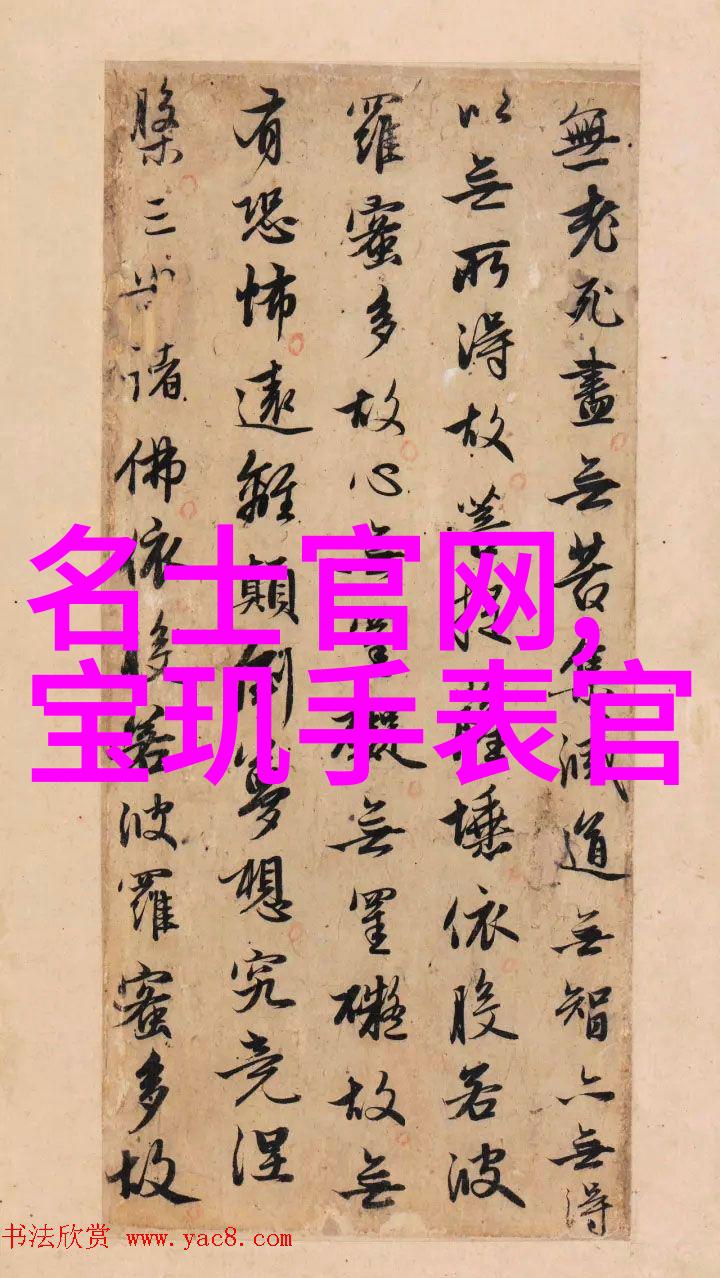 無老死盡无苦集滅道无智亦無得
以无所得故菩提薩埵依般若波
羅蜜多故心無罣礙无罣礙故无
有恐怖遠離顛倒夢想究竟涅
槃三世諸佛依般若波羅蜜多故
名士官网,
宝玑手表官
书法欣赏 www.yac8.com